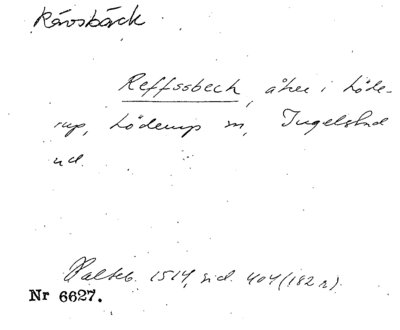 Rävsbäck
Reffssbech, åker i Löde-
rup, Löderup sn, Ingelstad
hd.
Palteb. 1514, sid. 404 (182 r).
Nr 6627.